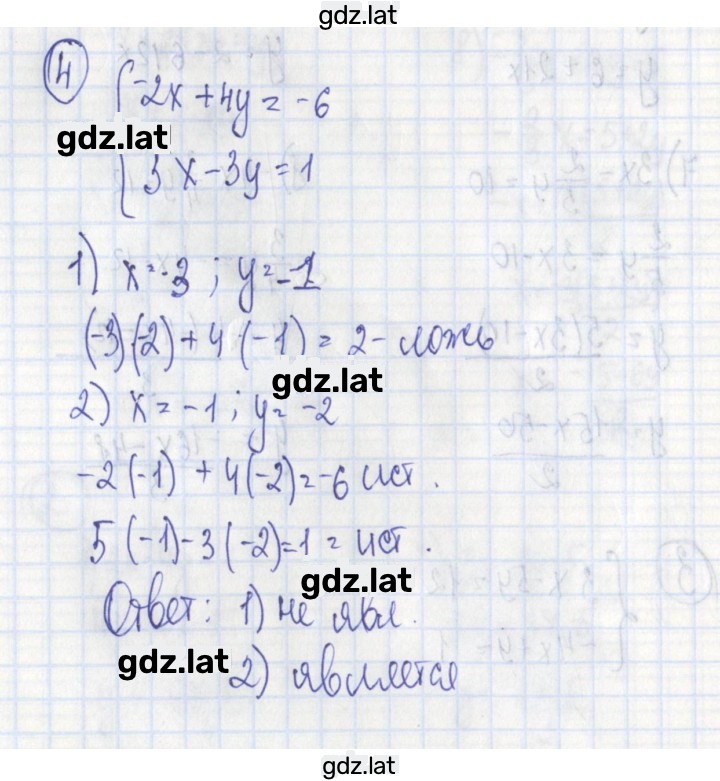 gdz.lat
4
-2x + 4y = -6
gdz.lat
3x - 3y = 1
1) x = -3 ; y = -1
(-3)(-2) + 4 · (-1) = 2 - ложь
gdz.lat
2) x = -1 ; y = -2
-2(-1) + 4(-2) = -6 ист.
5(-1) - 3(-2) = 1 = ист.
gdz.lat
Ответ: 1) не явл.
gdz.lat
2) является
gdz.lat